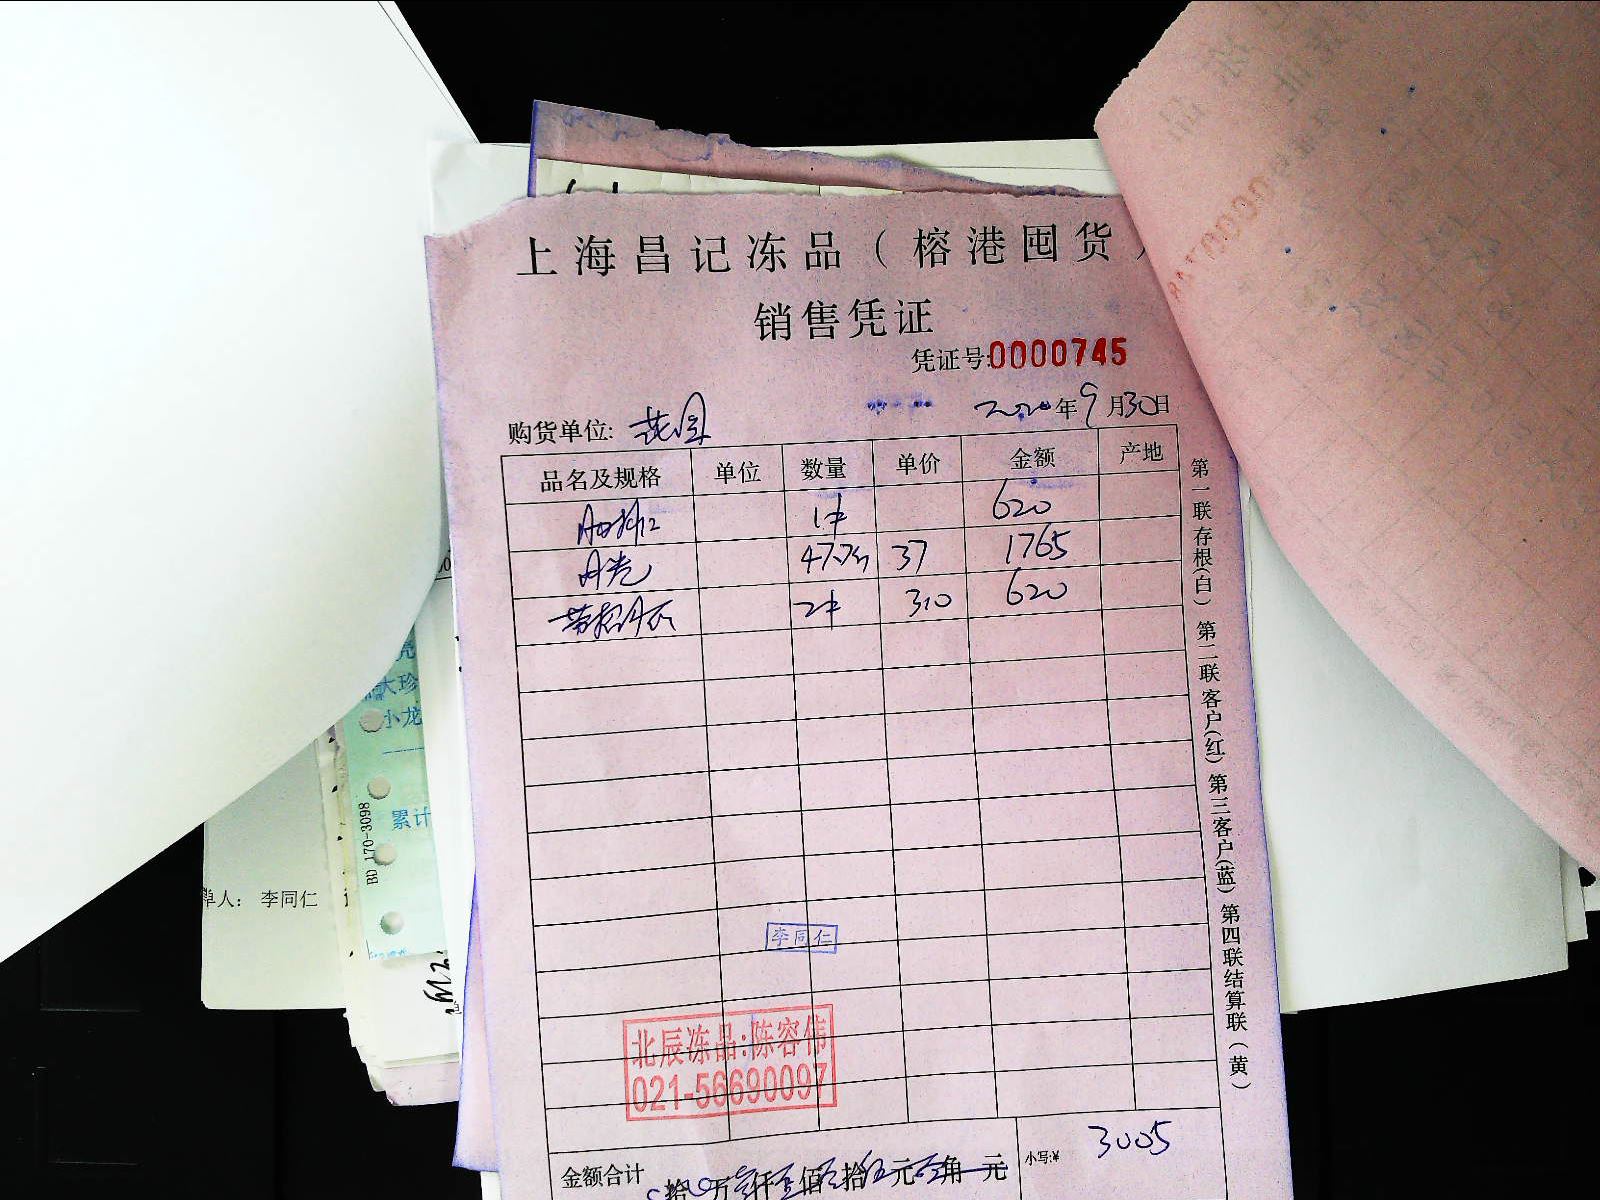 上海昌记冻品（榕港囤货）
销售凭证
凭证号:0000745
2020年9月30日
购货单位:
品名及规格 单位 数量 单价 金额 产地
1件 620
47.7斤 37 1765
2件 310 620
第一联存根(白) 第二联客户(红) 第三客户(蓝) 第四联结算联(黄)
李同仁
北辰冻品:陈容伟
021-56690097
金额合计 拾 万 仟 佰 拾 元 角 元 小写:¥ 3005
大珍
小龙
累计
BD 170-3098
单人： 李同仁